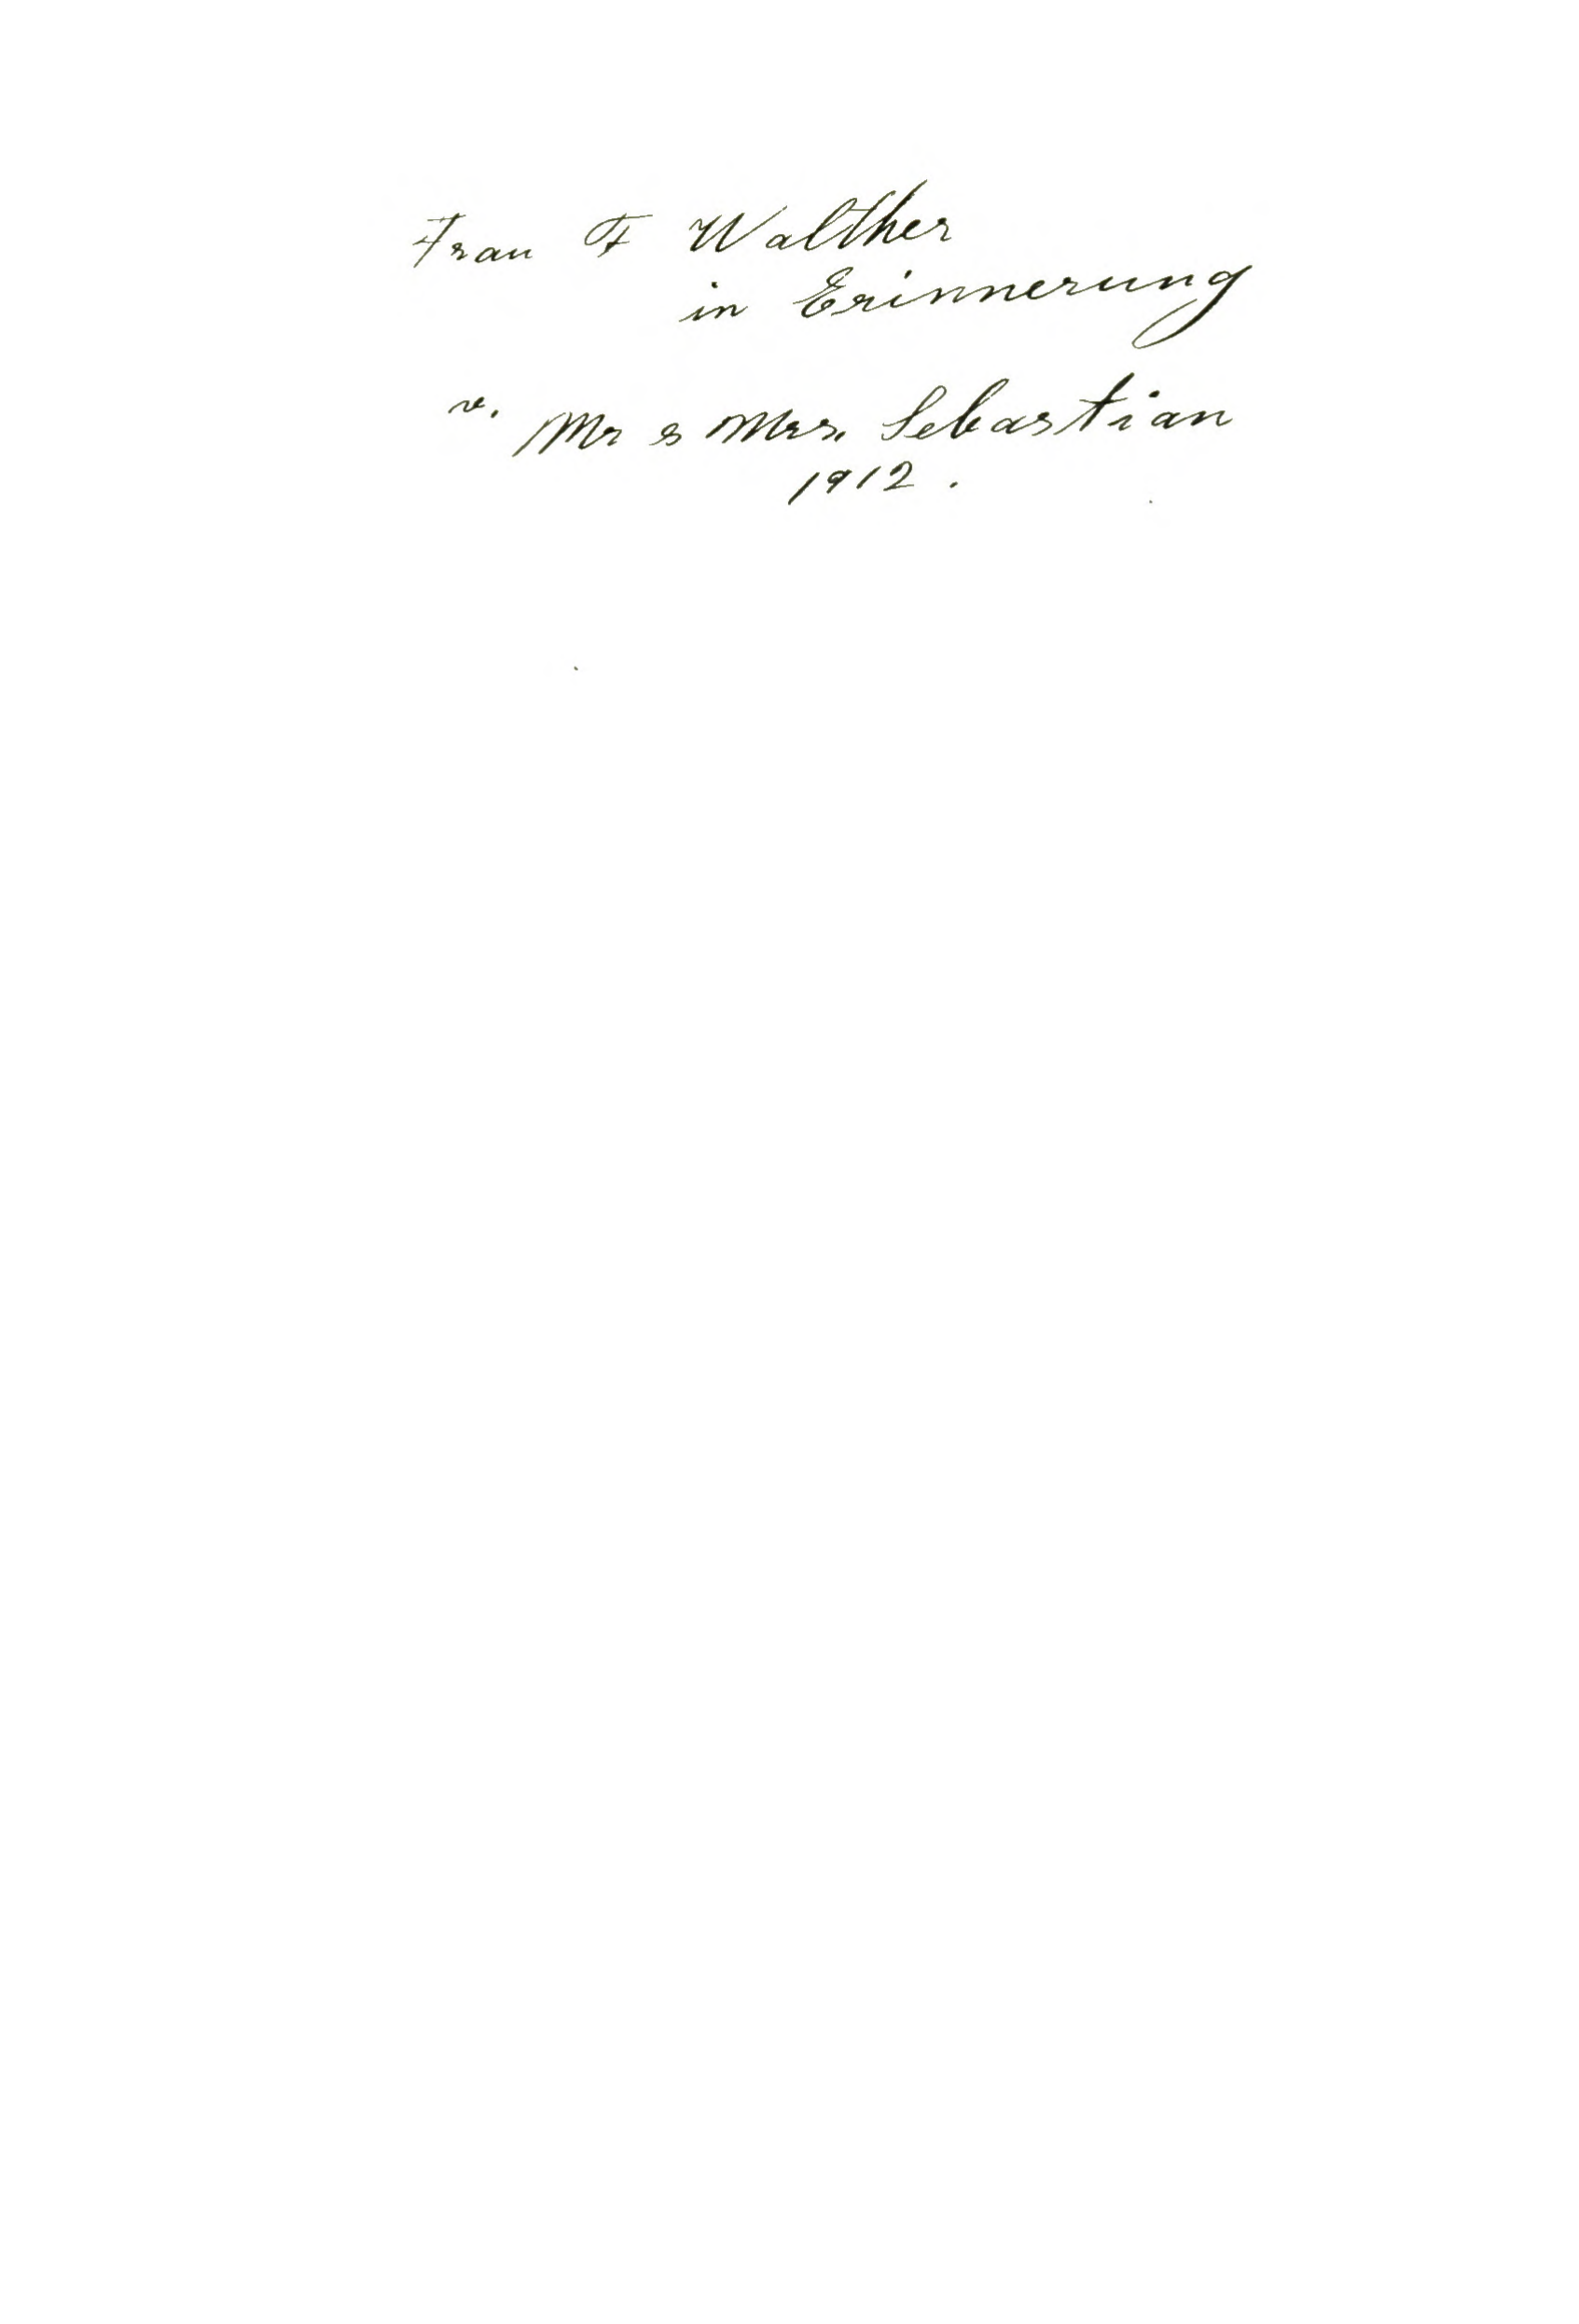 Frau F Walther
in Erinnerung
v. Mr & Mrs. Sebastian
1912.